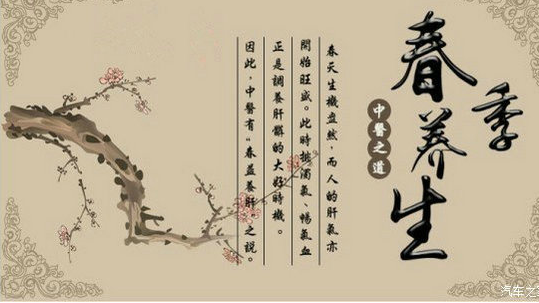 春季养生
中醫之道
春天生機盎然，而人的肝氣亦
開始旺盛。此時排濁氣、暢氣血
正是調養肝髒的大好時機。
因此，中醫有“春益養肝”之說。
汽车之